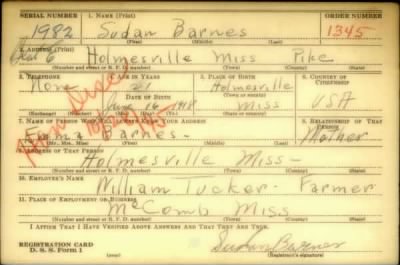 SERIAL NUMBER 1. NAME (Print) ORDER NUMBER
1982 Sudan Barnes 1345
(First) (Middle) (Last)
2. ADDRESS (Print)
Holmesville Miss Pike
(Number and street or R. F. D. number) (Town) (County) (State)
3. TELEPHONE 4. AGE IN YEARS 5. PLACE OF BIRTH 6. COUNTRY OF CITIZENSHIP
None 21 Holmesville
DATE OF BIRTH (Town or county)
June 16 1918 Miss USA
(Exchange) (Number) (Mo.) (Day) (Yr.) (State or country)
7. NAME OF PERSON WHO WILL ALWAYS KNOW YOUR ADDRESS 8. RELATIONSHIP OF THAT PERSON
Barnes - Mother
(Mr., Mrs., Miss) (First) (Middle) (Last)
9. ADDRESS OF THAT PERSON
Holmesville Miss -
(Number and street or R. F. D. number) (Town) (County) (State)
10. EMPLOYER'S NAME
William Tucker - Farmer
11. PLACE OF EMPLOYMENT OR BUSINESS
McComb Miss
(Number and street or R. F. D. number) (Town) (County) (State)
I AFFIRM THAT I HAVE VERIFIED ABOVE ANSWERS AND THAT THEY ARE TRUE.
REGISTRATION CARD
D. S. S. Form 1 Sudan Barnes
(Registrant's signature)